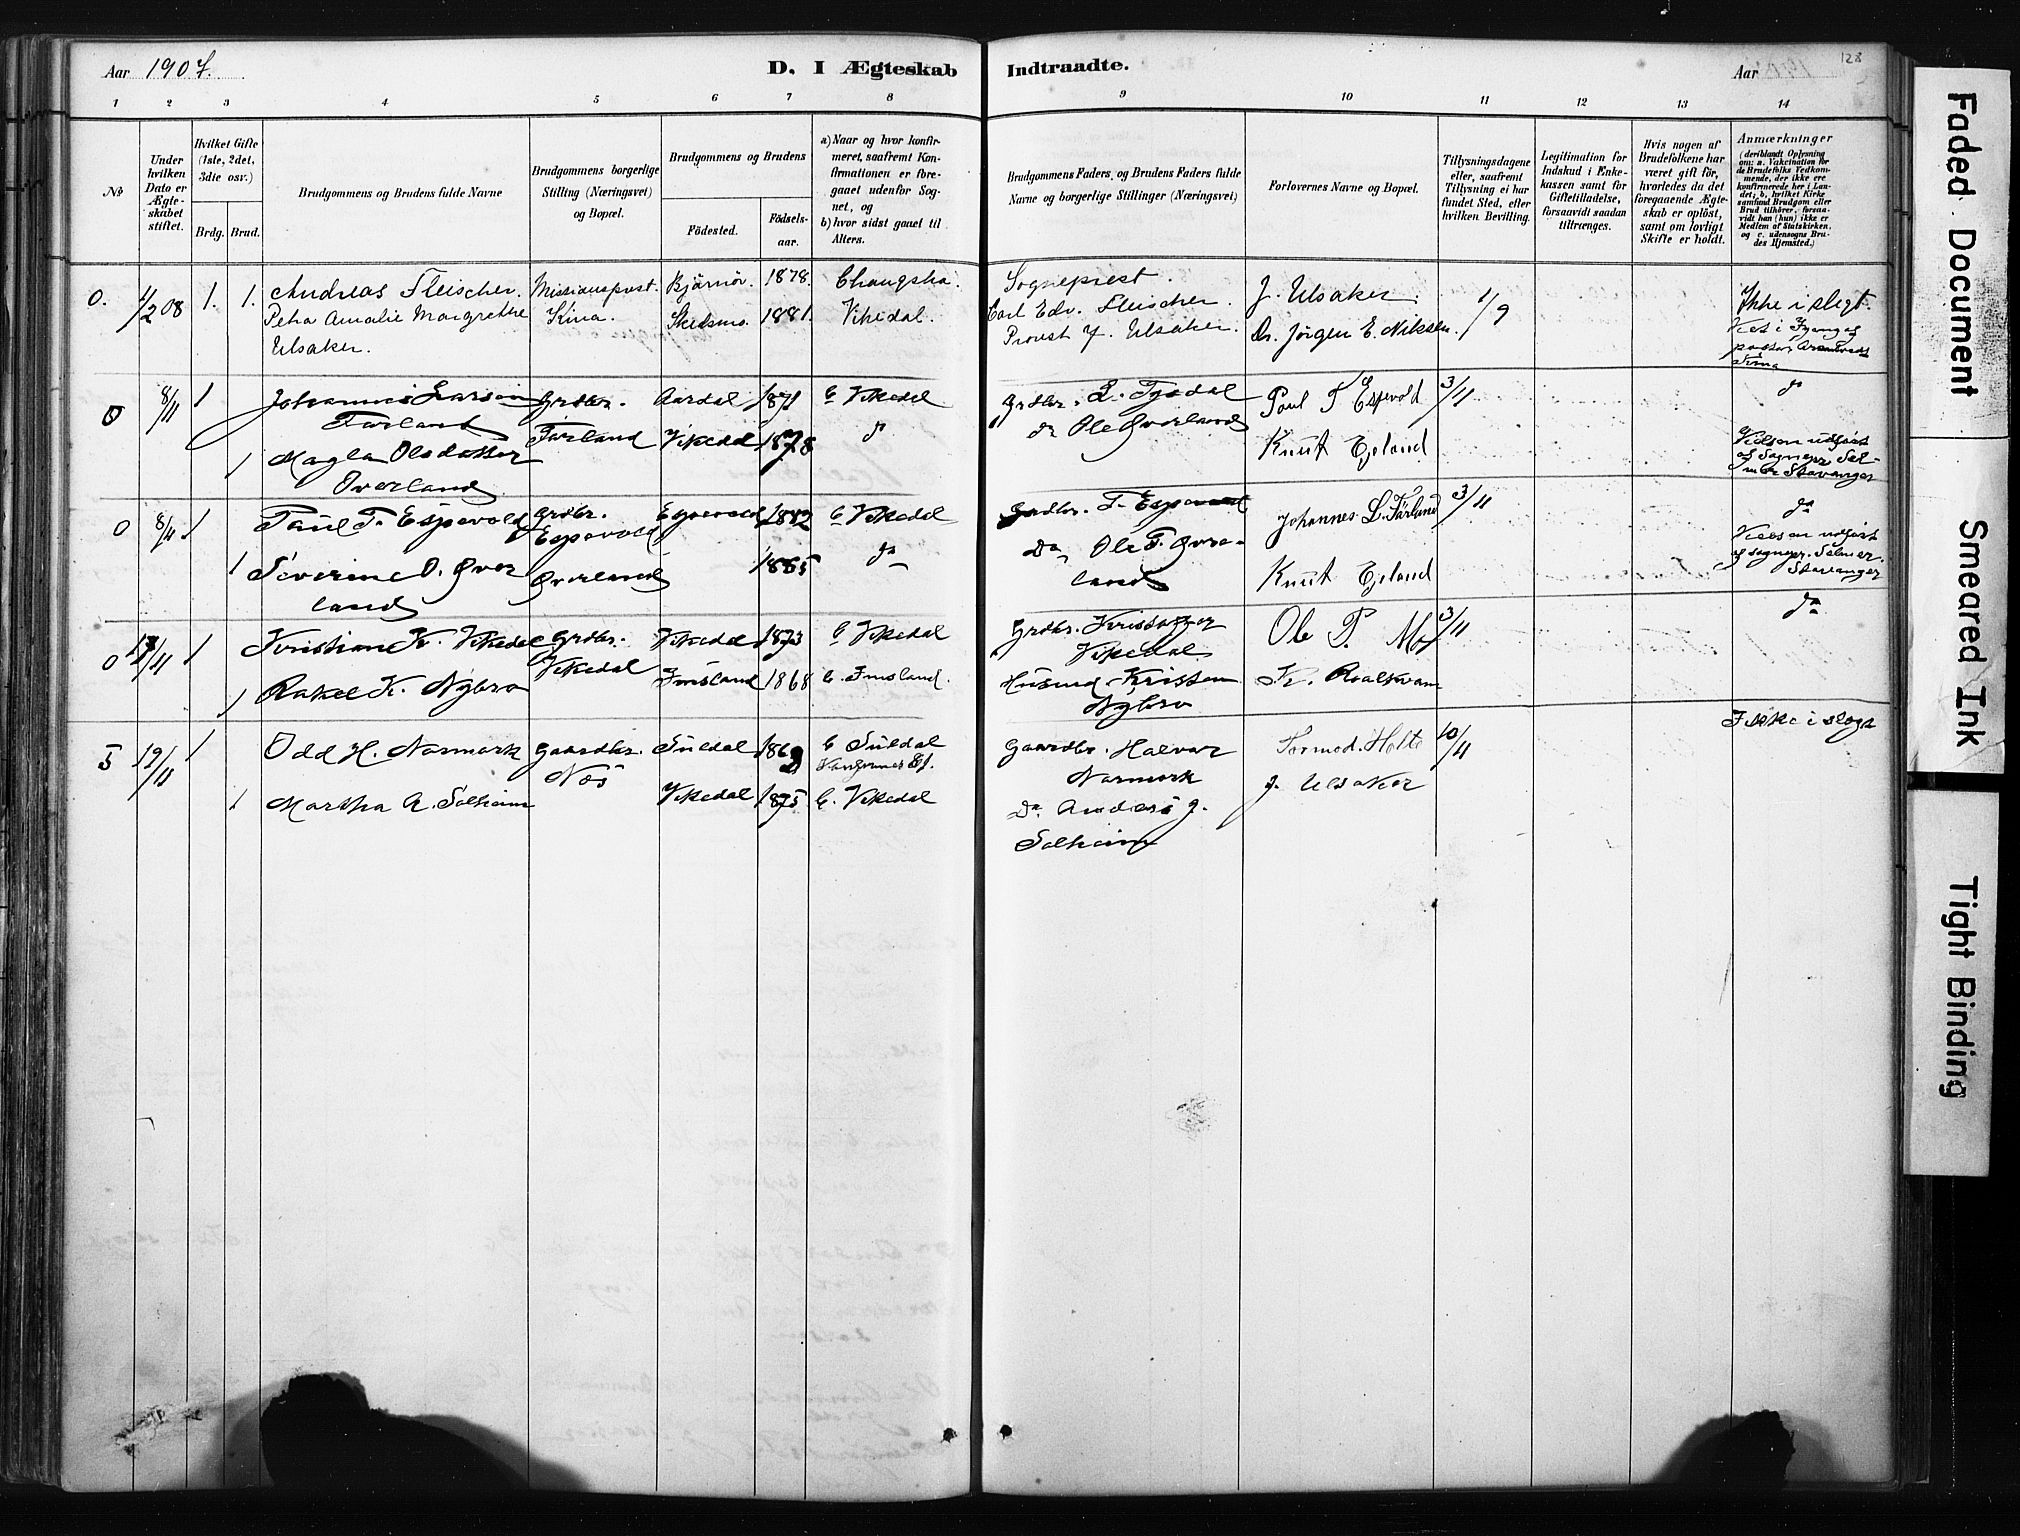 Aar 1907. D. I Ægteskab Indtraadte. Aar 128
1 2 3 4 5 6 7 8 9 10 11 12 13 14
No
Under hvilken Dato er Ægteskabet stiftet.
Hvilket Gifte (1ste, 2det, 3die osv.)
Brdg. Brud.
Brudgommens og Brudens fulde Navne
Brudgommens borgerlige Stilling (Næringsvei) og Bopæl.
Brudgommens og Brudens
Födested. Födsels-aar.
a) Naar og hvor konfirmeret, saafremt Konfirmationen er foregaaet udenfor Sognet, og
b) hvor sidst gaaet til Alters.
Brudgommens Faders, og Brudens Faders fulde Navne og borgerlige Stillinger (Næringsvei)
Forlovernes Navne og Bopæl.
Tillysningsdagene eller, saafremt Tillysning ei har fundet Sted, efter hvilken Bevilling.
Legitimation for Indskud i Enkekassen samt for Giftetilladelse, forsaavidt saadan tiltrænges.
Hvis nogen af Brudefolkene har været gift för, hvorledes da det foregaaende Ægteskab er oplöst, samt om lovligt Skifte er holdt.
Anmærkninger
(deriblandt Oplysning om: a. Vakcination for de Brudefolks Vedkommende, der ikke ere konfirmerede her i Landet; b. hvilket Kirkesamfund Brudgom eller Brud tilhörer, forsaavidt han (hun) ikke er Medlem af Statskirken, og c. udensogns Brudes Hjemsted.)
0. 1/2 08 1. 1. Andreas Fleischer. Missionsprest. Bjørnør. 1878. Changsha. Sogneprest J. Ulsaker. 1/9 Ikke i slegt.
Petra Amalie Margrethe Kina. Skedsmo. 1881. Vikedal. Carl Edv. Fleischer. Dr. Jörgen E. Nilsen.
Ulsaker. Provst J. Ulsaker.
0 8/11 1 Johannes Larsen Grdbr. Aardal 1871 C Vikedal Grdbr. L. Tysdal Poul T Espevold 3/11 do
Førland Førland Vikedal 1878 do do Ole Øverland
1 Magla Olsdatter Knut Ejeland
Overland
0 8/11 1 Paul T. Espevold Grdbr. Espevold 1882 C Vikedal Grdbr. T. Espevold Johannes L. Førland 3/11 do
Espevold
1 Severine O. Øver Øverland 1885 do Do Ole T. Øver-
land land Knut Ejeland
0 17/11 1 Kristian K. Vikedal Grdbr. Vikedal 1873 C Vikedal Grdbr. Kristoffer Ole P. Mo 3/11 do
Vikedal Vikedal
1 Rakel K. Nybro Imsland 1868 C. Imsland. Husmd. Kristen K. Roalkvam
Nybro
5 19/11 1 Odd H. Narmork Gaardbr. Suldal 1869 C Suldal Gaardbr. Halvor Tormod. Holte 10/11 Ikke i slegt
Næs Narmork J. Ulsaker
1 Martha A. Solheim Vikedal 1875 C. Vikedal Do Anders J.
Solheim
Faded Document
Smeared Ink
Tight Binding